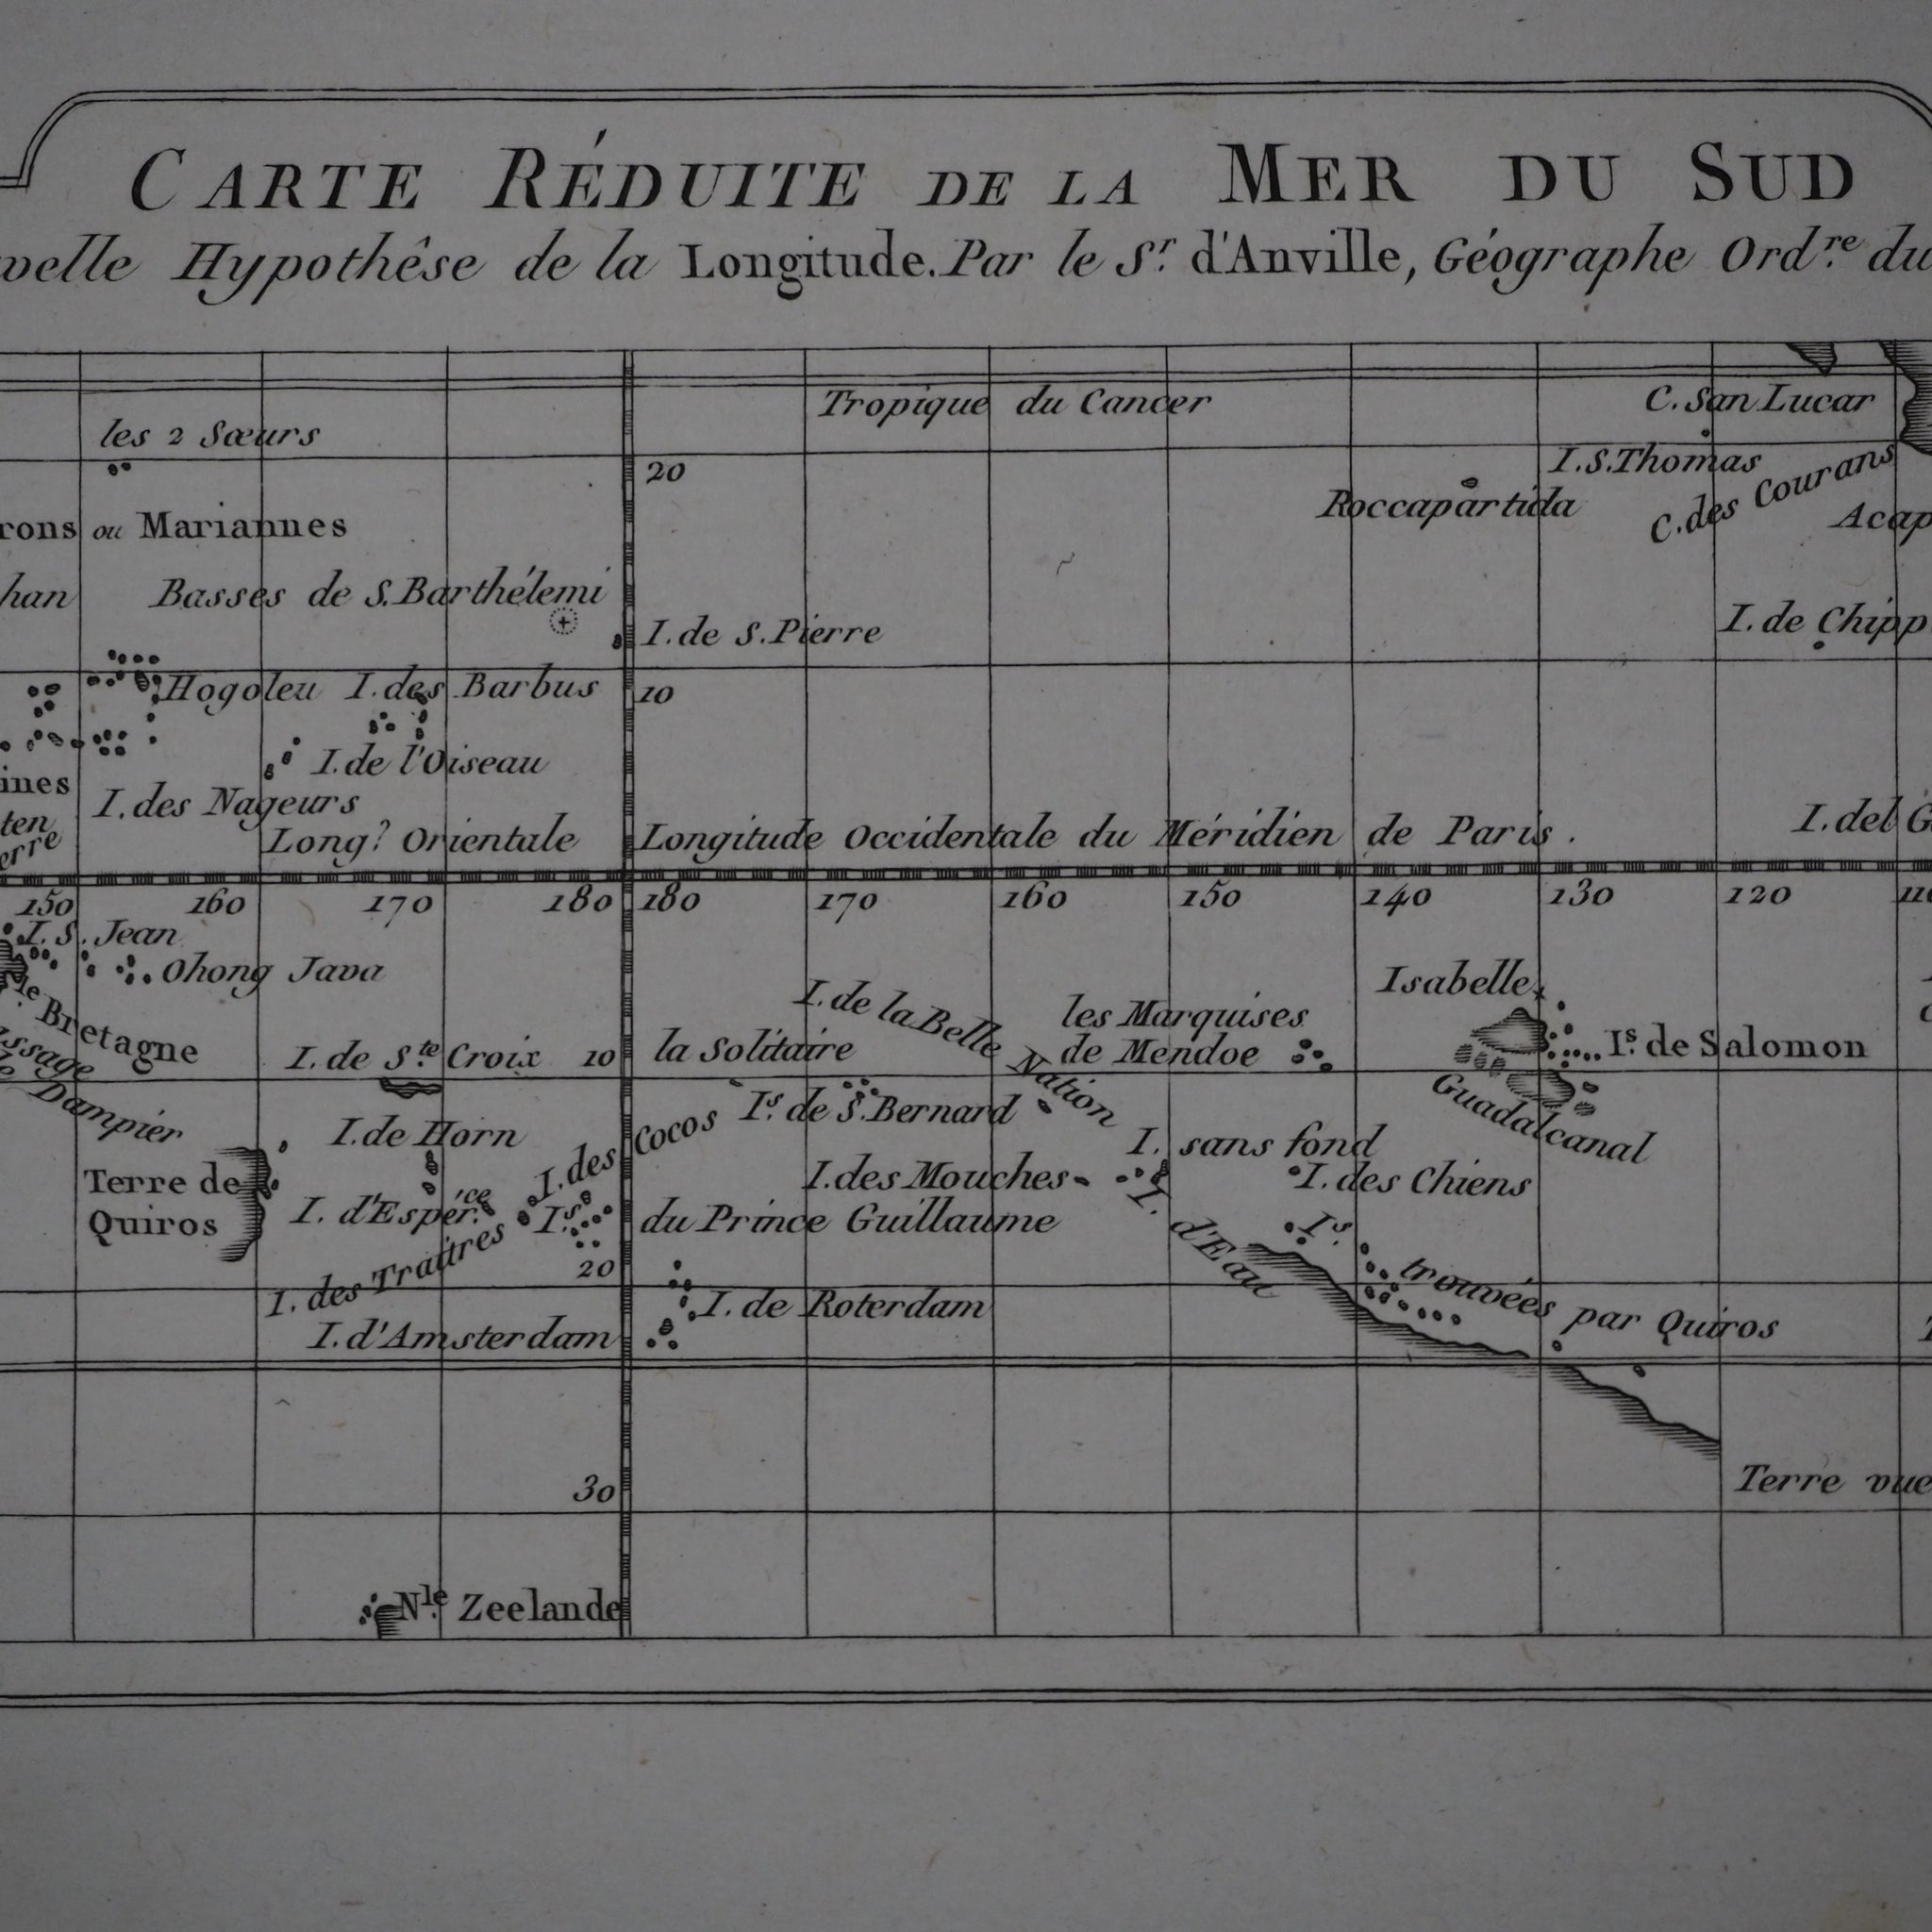 CARTE RÉDUITE DE LA MER DU SUD
Hypothêse de la Longitude. Par le Sr. d'Anville, Géographe Ordre. du
Tropique du Cancer
C. San Lucar
les 2 Sœurs
20
I. S. Thomas
C. des Courans
Roccapartida
ou Mariannes
Basses de S. Barthélemi
I. de S. Pierre
Hogoleu
I. des Barbus
10
I. de l'Oiseau
I. des Nageurs
Long. Orientale
Longitude Occidentale du Méridien de Paris.
150 160 170 180 180 170 160 150 140 130 120
I. S. Jean
Ohong Java
Isabelle
I. de la Belle Nation
les Marquises
de Mendoe
Bretagne
I. de Ste. Croix
10
la Solitaire
Is. de Salomon
Dampier
Guadalcanal
Is. de S. Bernard
I. de Horn
I. des Cocos
I. sans fond
Terre de
Quiros
I. des Mouches
I. des Chiens
I. d'Espérce.
Is. du Prince Guillaume
I. d'Eau
I. des Traitres
20
Is. trouvées par Quiros
I. de Roterdam
I. d'Amsterdam
Terre vue
30
Nle. Zeelande